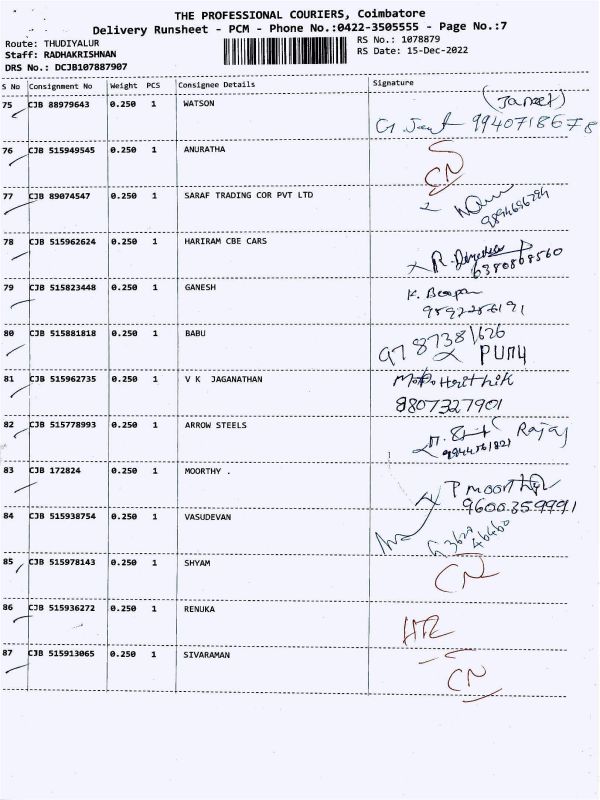 THE PROFESSIONAL COURIERS, Coimbatore
Delivery Runsheet - PCM - Phone No.:0422-3505555 - Page No.:7
Route: THUDIYALUR RS No.: 1078879
Staff: RADHAKRISHNAN RS Date: 15-Dec-2022
DRS No.: DCJB107887907
S No Consignment No Weight PCS Consignee Details Signature
75 CJB 88979643 0.250 1 WATSON
9940718678
76 CJB 515949545 0.250 1 ANURATHA CN
77 CJB 89074547 0.250 1 SARAF TRADING COR PVT LTD
78 CJB 515962624 0.250 1 HARIRAM CBE CARS R.
6380808560
79 CJB 515823448 0.250 1 GANESH K.
80 CJB 515881818 0.250 1 BABU 9787381626
81 CJB 515962735 0.250 1 V K JAGANATHAN
8807327901
82 CJB 515778993 0.250 1 ARROW STEELS Rajaj
83 CJB 172824 0.250 1 MOORTHY . P moorthy
9600359991
84 CJB 515938754 0.250 1 VASUDEVAN
85 CJB 515978143 0.250 1 SHYAM CN
86 CJB 515936272 0.250 1 RENUKA
87 CJB 515913065 0.250 1 SIVARAMAN CN